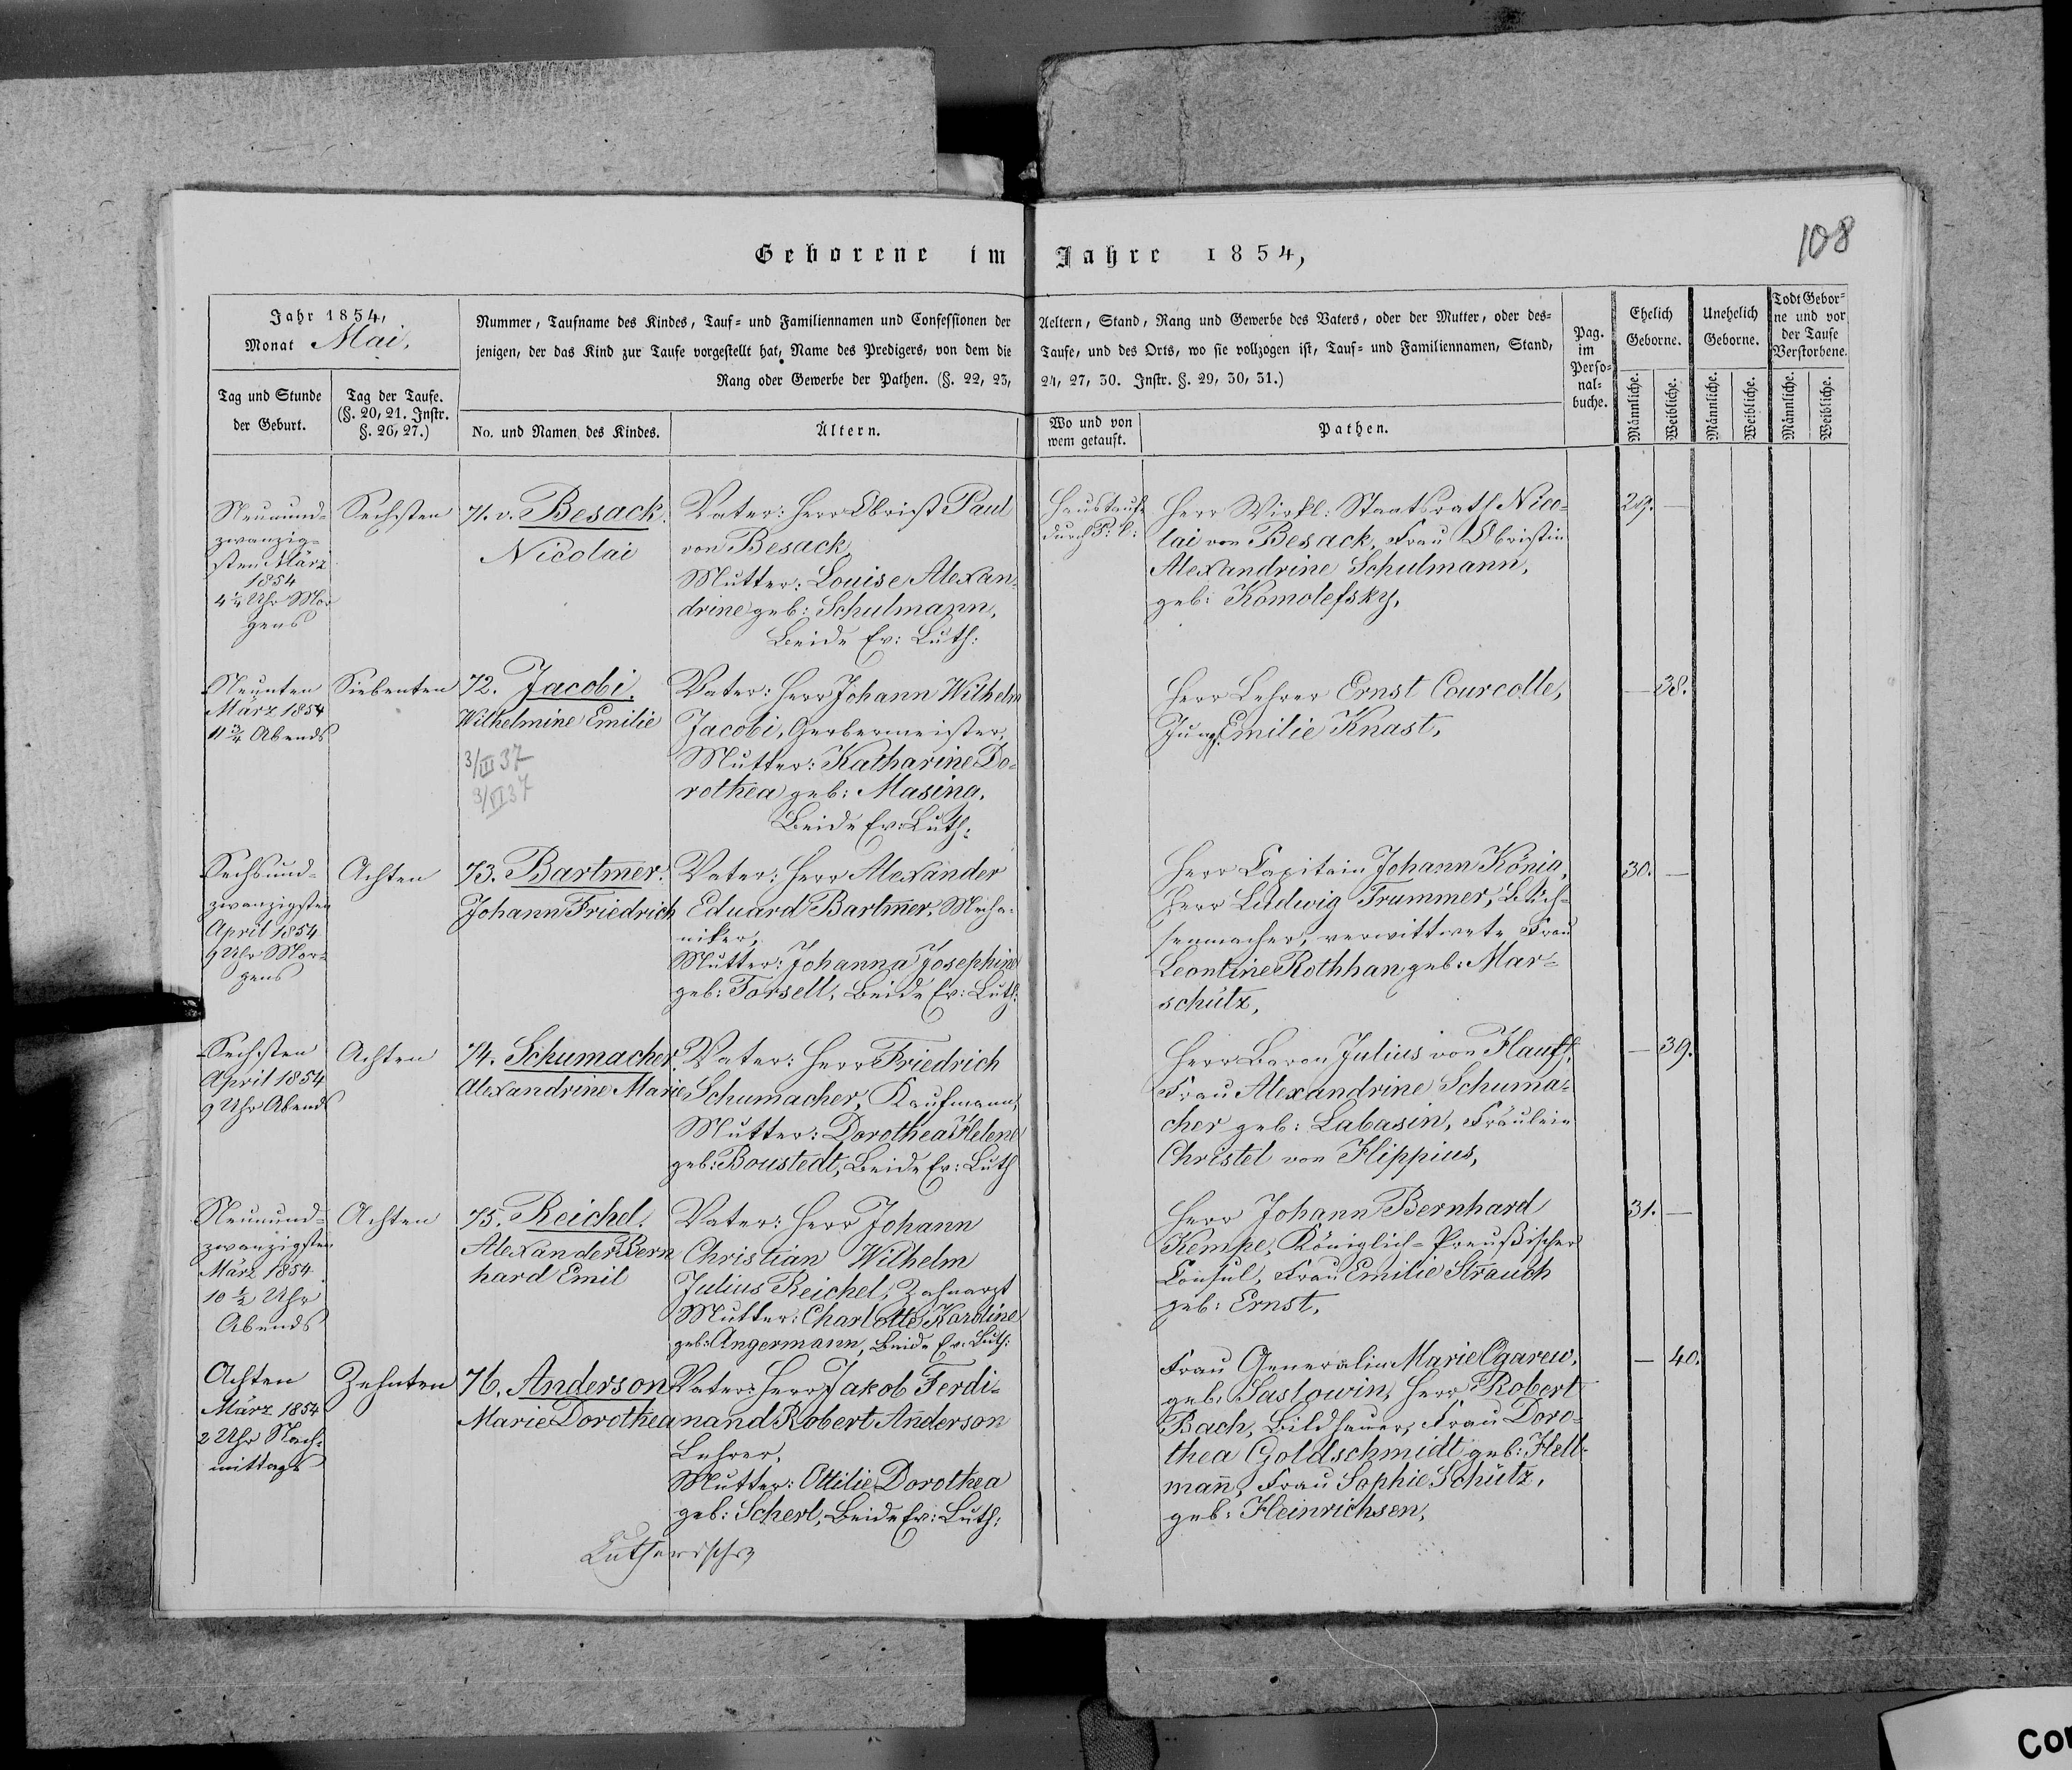 108
Geborene im Jahre 1854,
Jahr 1854,
Monat Mai.
Nummer, Taufname des Kindes, Tauf- und Familiennamen und Confessionen der Aeltern, Stand, Rang und Gewerbe des Vaters, oder der Mutter, oder des-
jenigen, der das Kind zur Taufe vorgestellt hat, Name des Predigers, von dem die Taufe, und des Orts, wo sie vollzogen ist, Tauf- und Familiennamen, Stand,
Rang oder Gewerbe der Pathen. (§. 22, 23, 24, 27, 30. Instr. §. 29, 30, 31.)
Pag.
im
Perso-
nal-
buche.
Ehelich
Geborne.
Unehelich
Geborne.
Todt Gebor-
ne und vor
der Taufe
Verstorbene.
Männliche.
Weibliche.
Männliche.
Weibliche.
Männliche.
Weibliche.
Tag und Stunde
der Geburt.
Tag der Taufe.
(§. 20, 21. Instr.
§. 26, 27.)
No. und Namen des Kindes.
Ältern.
Wo und von
wem getauft.
Pathen.
Neunund-
zwanzig-
sten März
1854
4 1/4 Uhr Mor
gens
Sechsten
71. v. Besack.
Nicolai
Vater: Herr Obrist Paul
von Besack,
Mutter: Louise Alexan-
drine geb: Schulmann,
Beide Ev: Luth:
Haustaufe
durch P:
Herr Wirkl: Staatsrath Nico-
lai von Besack, Frau Obristin
Alexandrine Schulmann,
geb: Komolefsky,
29. —
Neunten
März 1854
11 3/4 Abends
Siebenten
72. Jacobi.
Wilhelmine Emilie
3/III 37
3/VI 37
Vater: Herr Johann Wilhelm
Jacobi, Gerbermeister,
Mutter: Katharine Do-
rothea geb: Masing,
Beide Ev: Luth:
Herr Lehrer Ernst Courcolle,
Jungf. Emilie Knast,
— 38.
Sechsund-
zwanzigsten
April 1854
9 Uhr Mor-
gens
Achten
73. Bartmer.
Johann Friedrich
Vater: Herr Alexander
Eduard Bartmer, Mecha-
niker,
Mutter: Johanna Josephine
geb: Forsell, Beide Ev: Luth:
Herr Capitain Johann König,
Herr Ludwig Trummer, Büch-
senmacher, verwittwete Frau
Leontine Rothhan geb: Mar-
schütz,
30. —
Sechsten
April 1854
9 Uhr Abends
Achten
74. Schumacher.
Alexandrine Marie
Vater: Herr Friedrich
Schumacher, Kaufmann,
Mutter: Dorothea Helene
geb: Boustedt, Beide Ev: Luth
Herr Baron Julius von Hauff,
Frau Alexandrine Schuma-
cher geb: Labasin, Fräulein
Christel von Hippius,
— 39.
Neunund-
zwanzigsten
März 1854
10 1/2 Uhr
Abends
Achten
75. Reichel.
Alexander Bern
hard Emil
Vater: Herr Johann
Christian Wilhelm
Julius Reichel, Zahnarzt
Mutter: Charlotte Karoline
geb: Angermann, Beide Ev: Luth:
Herr Johann Bernhard
Kempe, Königlich-Preußischer
Consul, Frau Emilie Strauch
geb: Ernst,
31. —
Achten
März 1854
2 Uhr Nach-
mittags
Zehnten
76. Anderson
Marie Dorothea
Vater: Herr Jakob Ferdi-
nand Robert Anderson
Lehrer,
Mutter: Ottilie Dorothea
geb: Scherl, Beide Ev: Luth:
Lutherischer
Frau Generalin Marie Ogarew,
geb. Saslowin, Herr Robert
Bach, Bildhauer, Frau Doro-
thea Goldschmidt geb: Hell-
mann, Frau Sophie Schütz,
geb: Heinrichsen,
— 40.